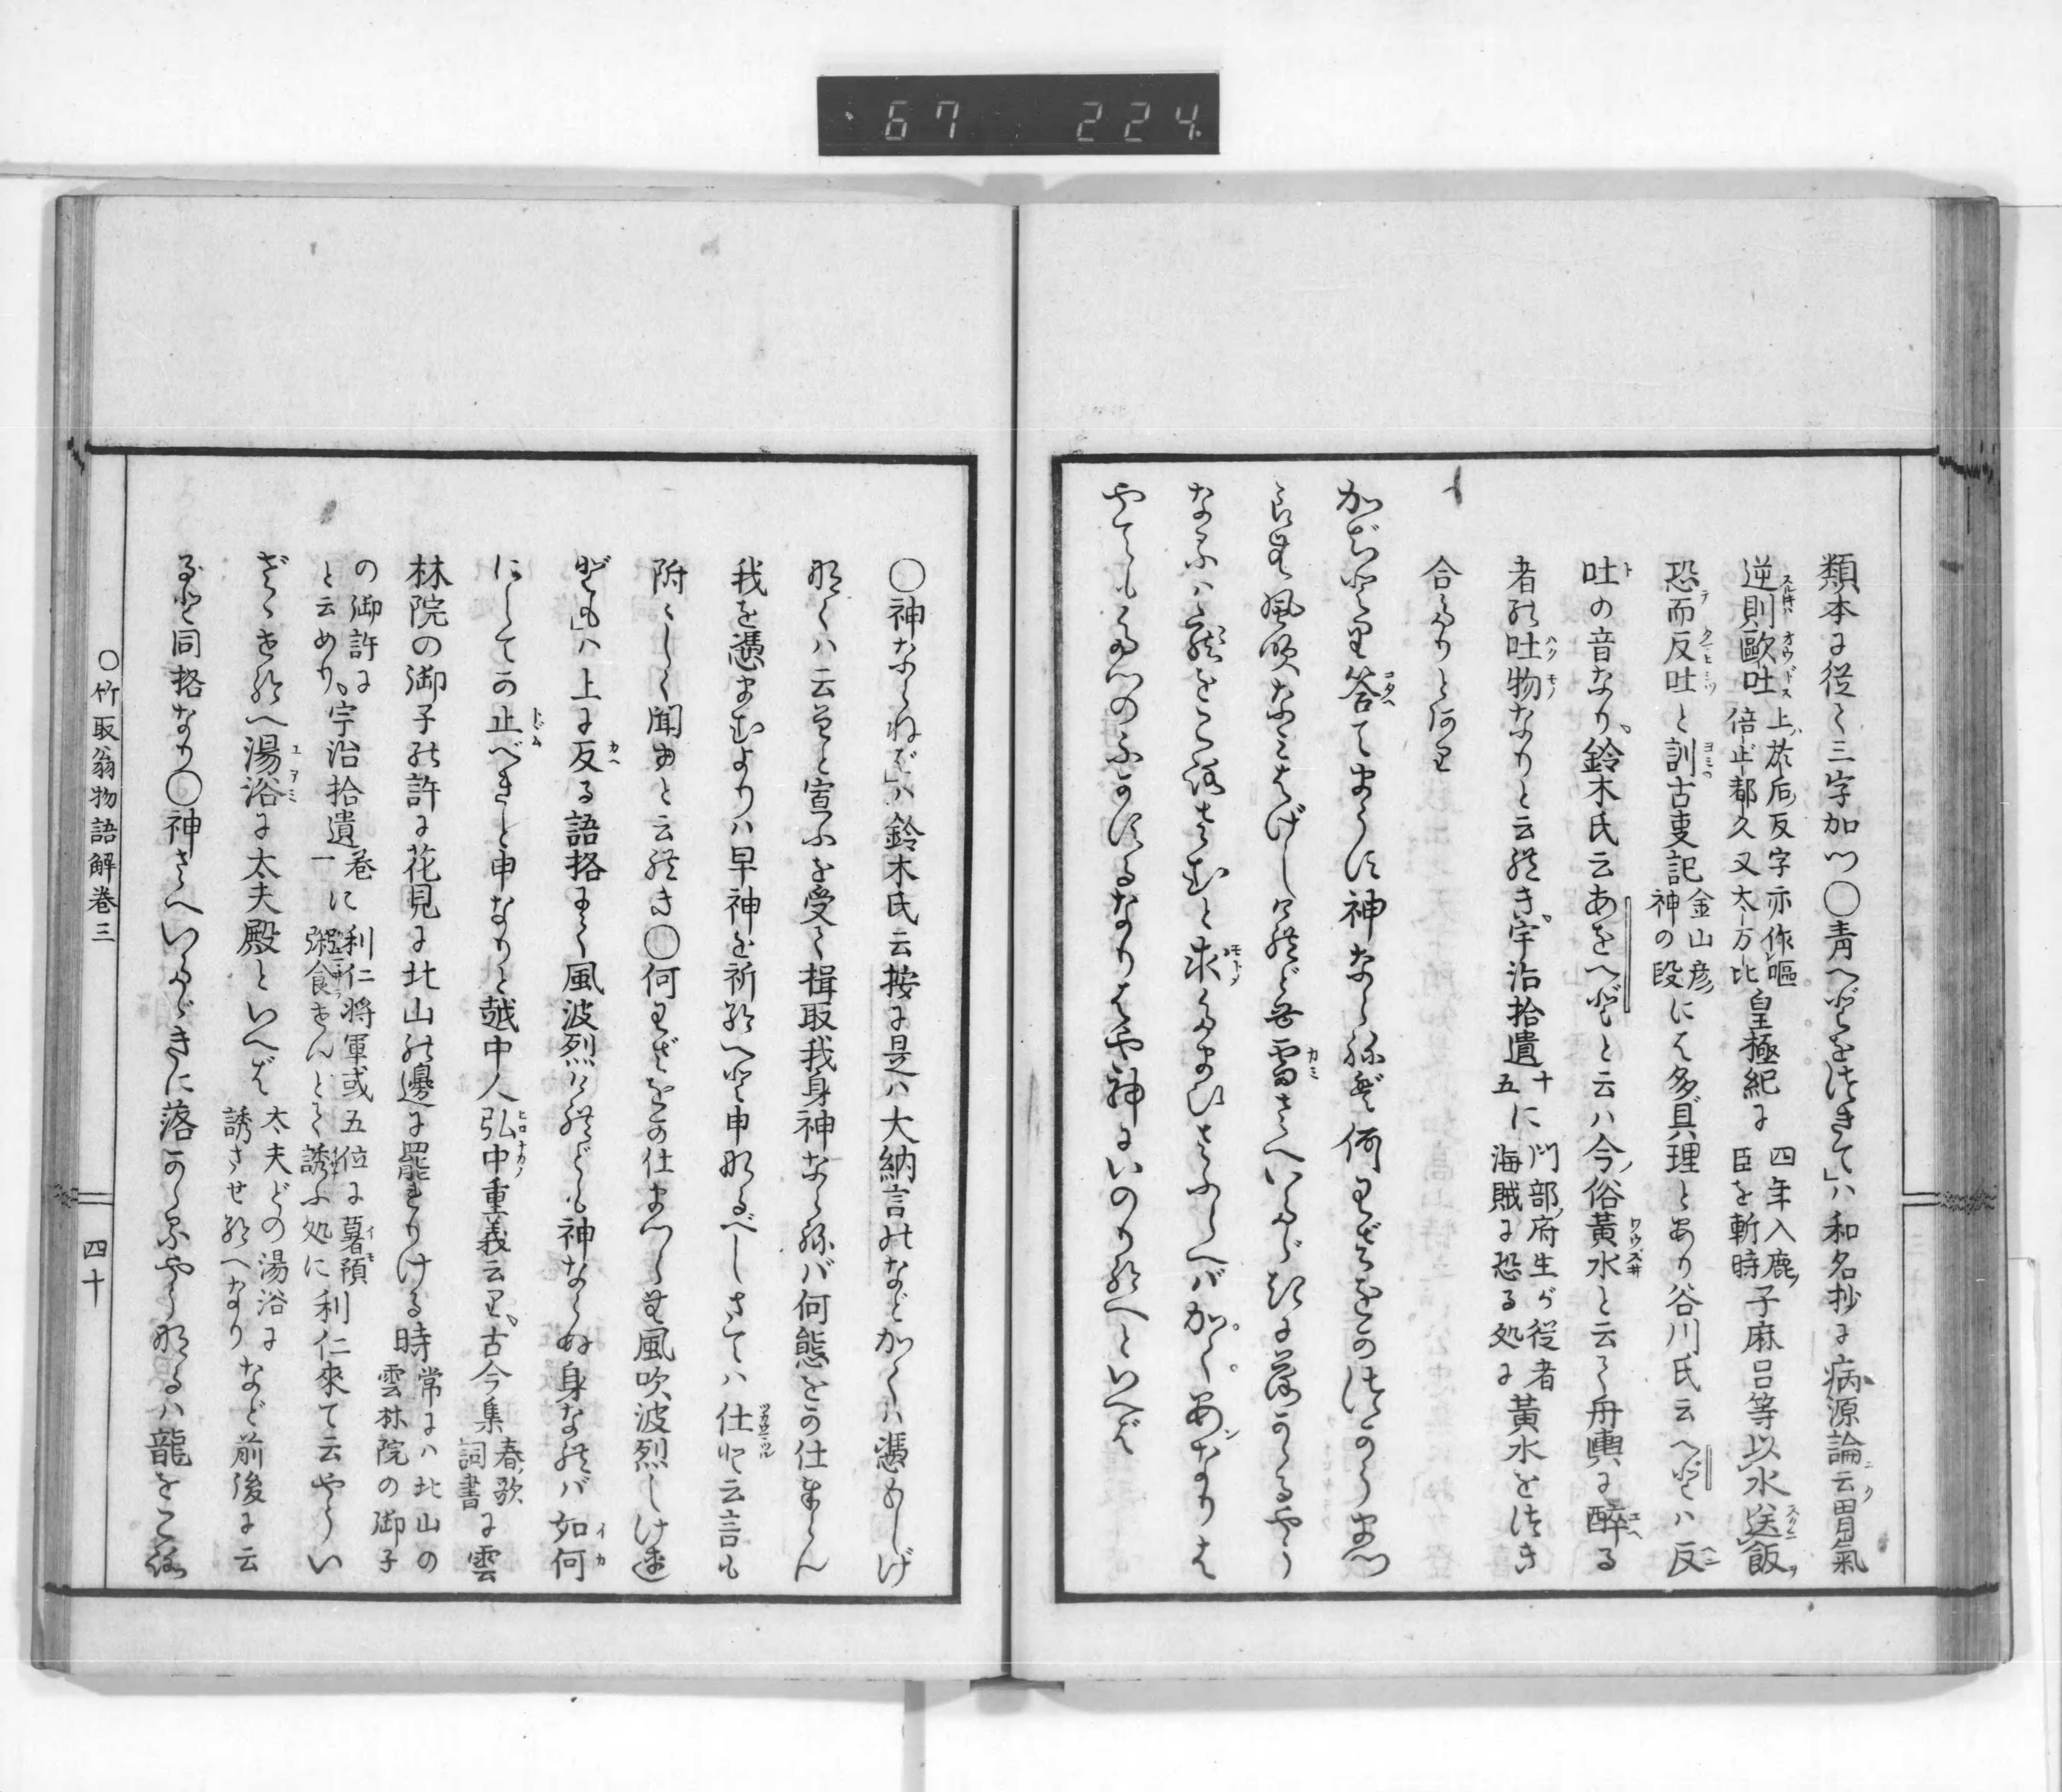 67 224
類本に従て三字加つ〇青へどをつきて」ハ和名抄に病源論云胃氣
逆則歐吐 上於后反字亦作嘔 倍止都久又太万比 皇極紀に 四年入鹿ノ 臣を斬時 子麻呂等以水送飯
恐而反吐と訓古事記 金山彦 神の段 にも多具理とあり谷川氏云へどハ反
吐の音なり鈴木氏云あをへどと云ハ今ノ俗黃水と云て舟輿に醉る
者の吐物なりと云れき宇治拾遺 十五 に 門部ノ府生が従者 海賊に恐る処に 黃水をつき
合たりと何り
かぢとり答てまうす神ならねば何わざをつかうまつ
らむ風吹なミはげしけれども雷さへいたゞきに落かゝるやう
なるハ龍をころさむと求たまひさふらへバかくあなりは
やてもりうのふかするなりはや神にいのり給へといへば
〇神ならねば」ハ鈴木氏云按に是ハ大納言のなどかくハ憑もしげ
なくハ云ぞと宣ふを受て揖取我身神ならねバ何態をか仕まつらん
我を憑まむよりハ早神を祈給へと申なるべしさてハ仕と云言も
附〻しく聞ゆと云れき〇何わざをか仕まつらむ風吹波烈しけれ
ども」ハ上に反る語格にて風波烈けれども神ならぬ身なれバ如何
にしてか止べきと申なりと越中人弘中重義云り古今集 春ノ歌 詞書 に雲
林院の御子の許に花見に北山の邊に罷れりける時 常にハ北山の 雲林院の御子
の御許に と云めり 宇治拾遺 卷一 に 利仁将軍或五位に暑預 粥食せんとて誘ふ処に 利仁來て云やうい
ざゝせ給へ湯浴に太夫殿といへば 太夫どの湯浴に 誘させ給へなり など前後に云
ると同格なり〇神さへいたゞきに落かゝるやうなるハ龍をころ
〇竹取翁物語解卷三
四十